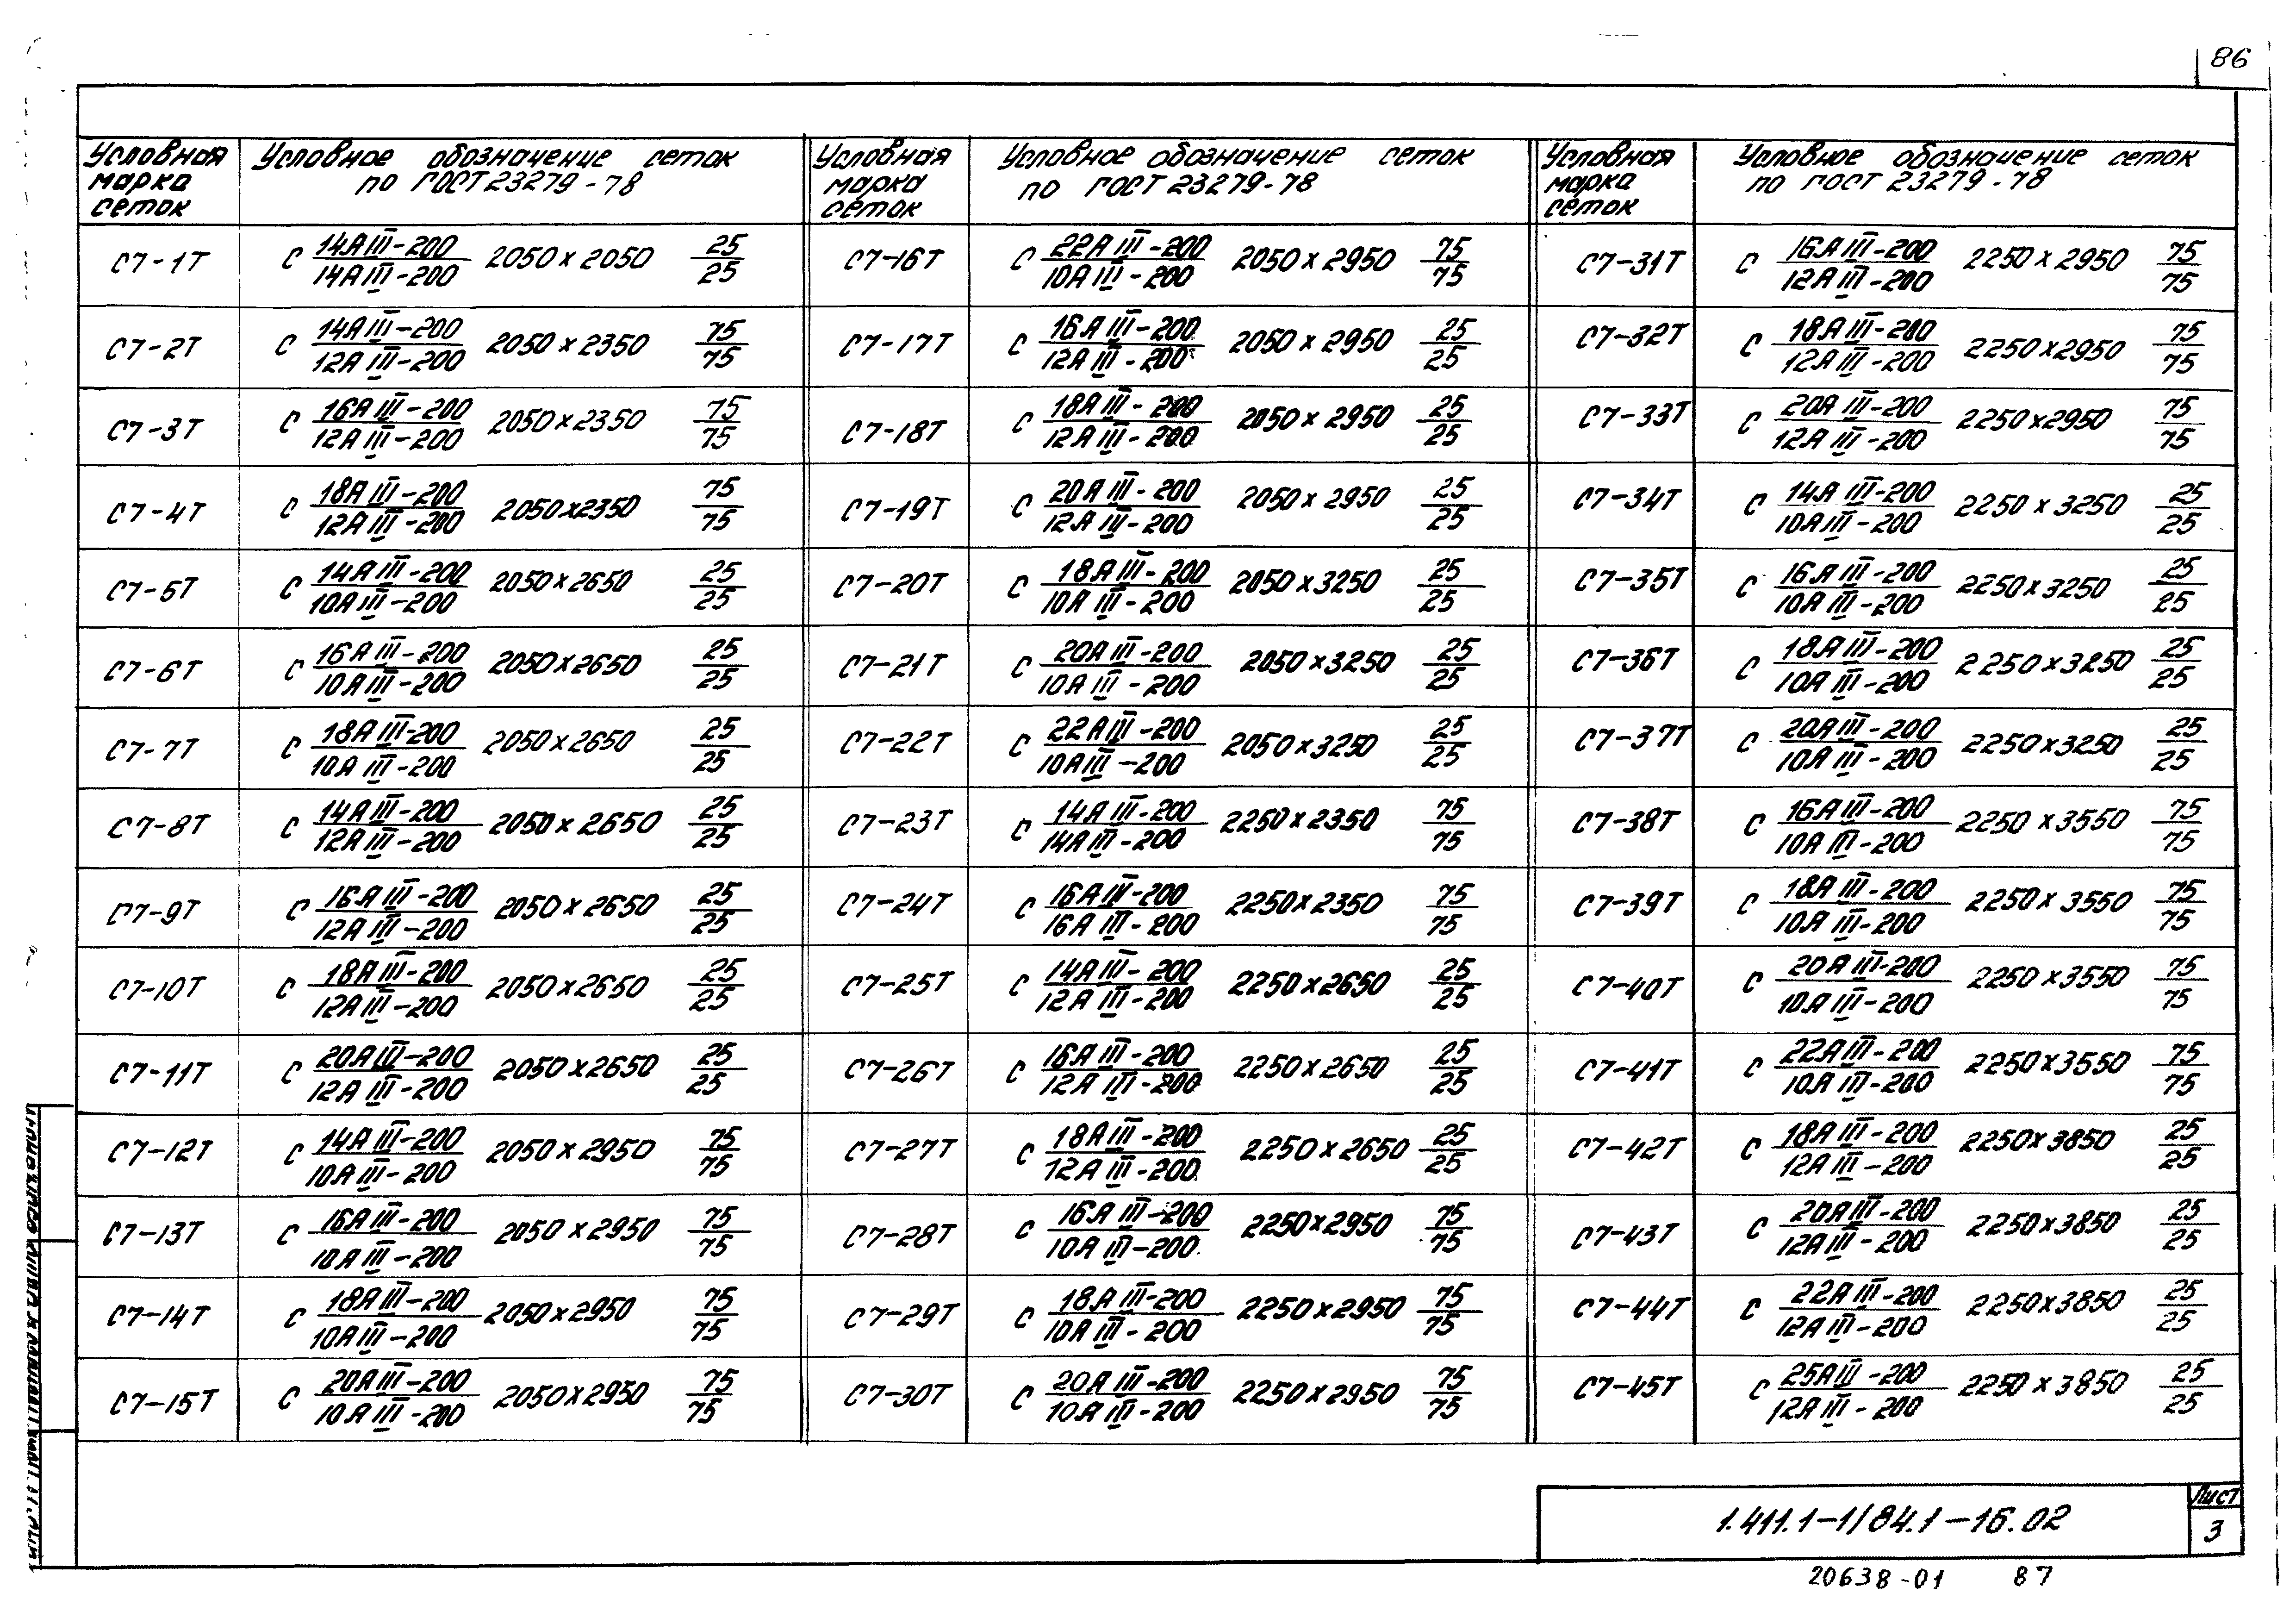 86
Условная марка сеток | Условное обозначение сеток по ГОСТ 23279-78 | Условная марка сеток | Условное обозначение сеток по ГОСТ 23279-78 | Условная марка сеток | Условное обозначение сеток по ГОСТ 23279-78
С7-1Т | С 14АIII-200/14АIII-200 2050х2050 25/25 | С7-16Т | С 22АIII-200/10АIII-200 2050х2950 75/75 | С7-31Т | С 16АIII-200/12АIII-200 2250х2950 75/75
С7-2Т | С 14АIII-200/12АIII-200 2050х2350 75/75 | С7-17Т | С 16АIII-200/12АIII-200 2050х2950 25/25 | С7-32Т | С 18АIII-200/12АIII-200 2250х2950 75/75
С7-3Т | С 16АIII-200/12АIII-200 2050х2350 75/75 | С7-18Т | С 18АIII-200/12АIII-200 2050х2950 25/25 | С7-33Т | С 20АIII-200/12АIII-200 2250х2950 75/75
С7-4Т | С 18АIII-200/12АIII-200 2050х2350 75/75 | С7-19Т | С 20АIII-200/12АIII-200 2050х2950 25/25 | С7-34Т | С 14АIII-200/10АIII-200 2250х3250 25/25
С7-5Т | С 14АIII-200/10АIII-200 2050х2650 25/25 | С7-20Т | С 18АIII-200/10АIII-200 2050х3250 25/25 | С7-35Т | С 16АIII-200/10АIII-200 2250х3250 25/25
С7-6Т | С 16АIII-200/10АIII-200 2050х2650 25/25 | С7-21Т | С 20АIII-200/10АIII-200 2050х3250 25/25 | С7-36Т | С 18АIII-200/10АIII-200 2250х3250 25/25
С7-7Т | С 18АIII-200/10АIII-200 2050х2650 25/25 | С7-22Т | С 22АIII-200/10АIII-200 2050х3250 25/25 | С7-37Т | С 20АIII-200/10АIII-200 2250х3250 25/25
С7-8Т | С 14АIII-200/12АIII-200 2050х2650 25/25 | С7-23Т | С 14АIII-200/14АIII-200 2250х2350 75/75 | С7-38Т | С 16АIII-200/10АIII-200 2250х3550 75/75
С7-9Т | С 16АIII-200/12АIII-200 2050х2650 25/25 | С7-24Т | С 16АIII-200/16АIII-200 2250х2350 75/75 | С7-39Т | С 18АIII-200/10АIII-200 2250х3550 75/75
С7-10Т | С 18АIII-200/12АIII-200 2050х2650 25/25 | С7-25Т | С 14АIII-200/12АIII-200 2250х2650 25/25 | С7-40Т | С 20АIII-200/10АIII-200 2250х3550 75/75
С7-11Т | С 20АIII-200/12АIII-200 2050х2650 25/25 | С7-26Т | С 16АIII-200/12АIII-200 2250х2650 25/25 | С7-41Т | С 22АIII-200/10АIII-200 2250х3550 75/75
С7-12Т | С 14АIII-200/10АIII-200 2050х2950 75/75 | С7-27Т | С 18АIII-200/12АIII-200 2250х2650 25/25 | С7-42Т | С 18АIII-200/12АIII-200 2250х3850 25/25
С7-13Т | С 16АIII-200/10АIII-200 2050х2950 75/75 | С7-28Т | С 16АIII-200/10АIII-200 2250х2950 75/75 | С7-43Т | С 20АIII-200/12АIII-200 2250х3850 25/25
С7-14Т | С 18АIII-200/10АIII-200 2050х2950 75/75 | С7-29Т | С 18АIII-200/10АIII-200 2250х2950 75/75 | С7-44Т | С 22АIII-200/12АIII-200 2250х3850 25/25
С7-15Т | С 20АIII-200/10АIII-200 2050х2950 75/75 | С7-30Т | С 20АIII-200/10АIII-200 2250х2950 75/75 | С7-45Т | С 25АIII-200/12АIII-200 2250х3850 25/25
1.411.1-1/84.1-16.02
Лист
3
20638-01 87